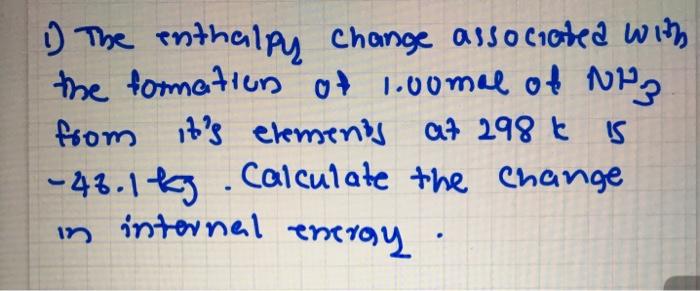 1) The enthalpy change associated with
the formation of 1.00 mol of NH3
from it's elements at 298 k is
-46.1 kJ . Calculate the change
in internal energy .